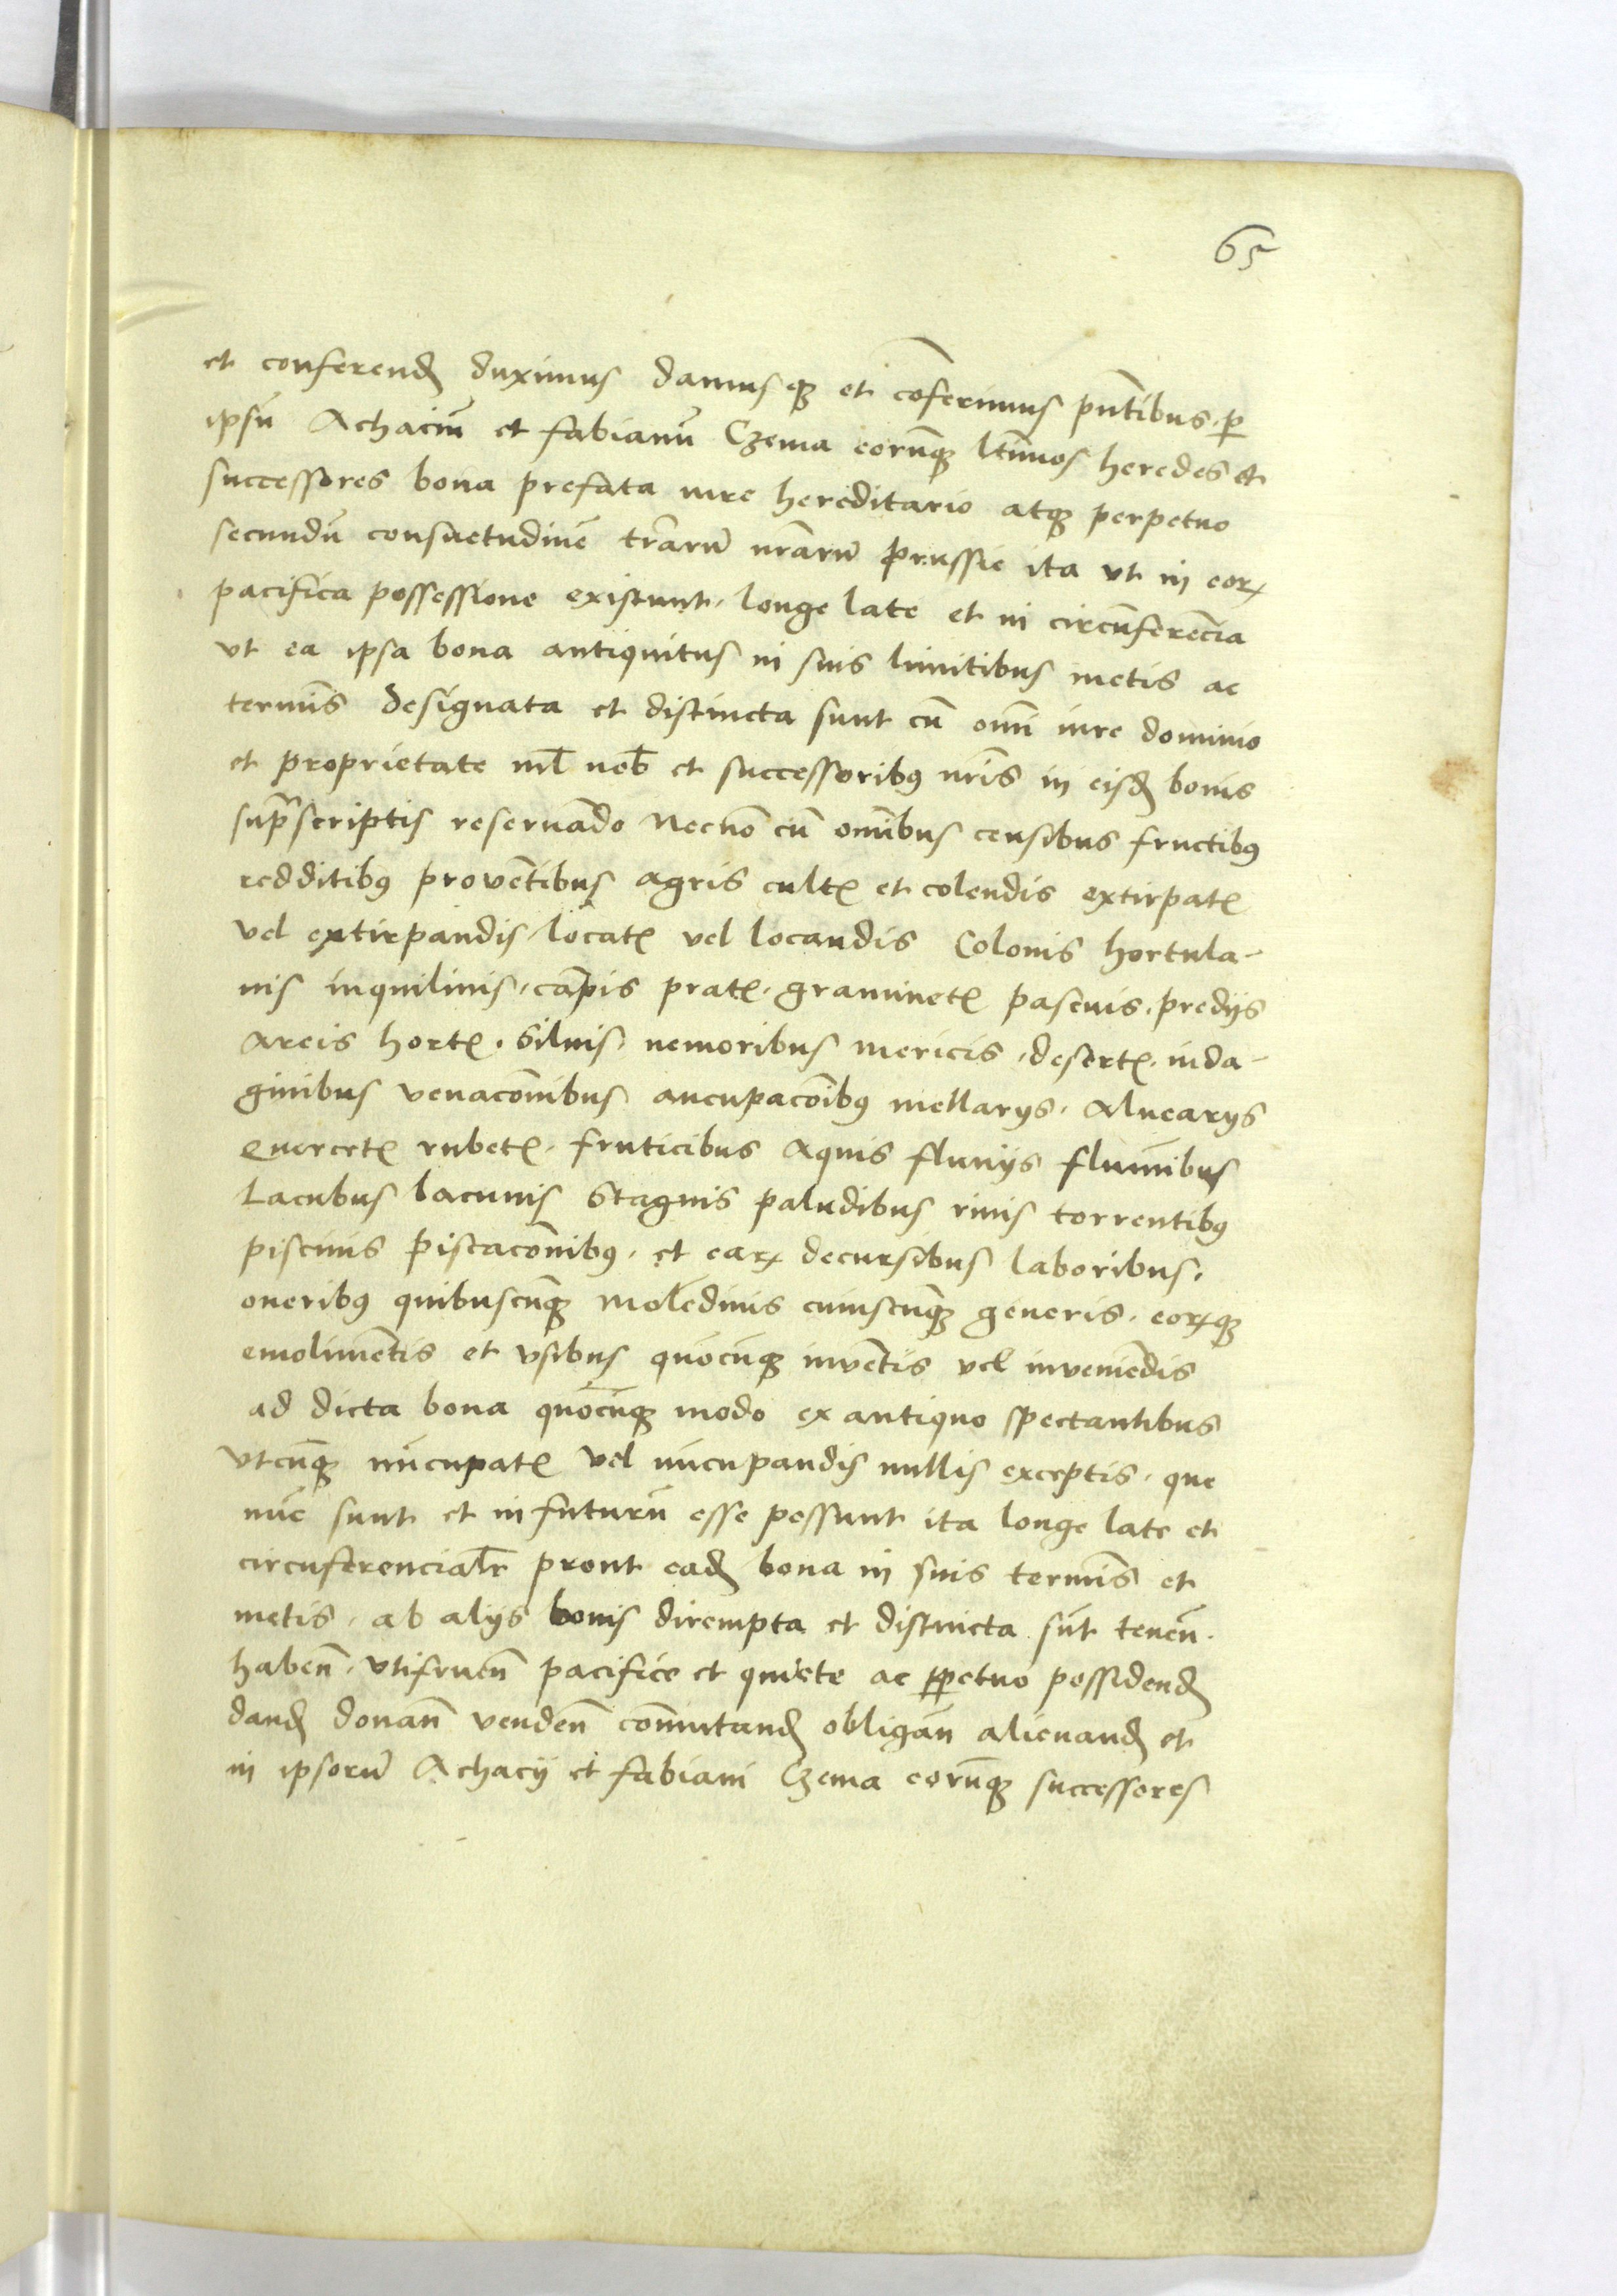 65
et conferend̄ duximus damusqȝ et cōferimus pn̄tibus. ꝑ
ipsū Achaciū et fabianū Czema eorūqȝ ltīmos heredes et
successores bona prefata iure hereditario atqȝ perpetuo
secundū consuetudinē trārū nrārū prussie ita vt in eoꝝ
pacifica possessione existunt, longe late et in circūferēcia
vt ea ipsa bona antiquitus in suis limitibus metis ac
termīs designata et distincta sunt cū omī iure dominio
et proprietate nil̄ nob̄ et successoribꝰ nr̄is in eisd̄ bonis
supͣscriptis reseruādo Necnō cū omībus censibus fructibꝰ
redditibꝰ provētibus agris cultꝭ et colendis extirpatꝭ
vel extirpandis, locatꝭ vel locandis Colonis hortula-
nis inquilinis, cāpis pratꝭ, graminetꝭ pascuis, predijs
Areis hortꝭ, Siluis, nemoribus mericis, desertꝭ, inda-
ginibus venacōnibus aucupacōibꝰ mellarijs, Aluearijs
Quercetꝭ rubetꝭ, fruticibus Aquis fluuijs flumībus
Lacubus lacunis Stagnis paludibus riuis torrentibꝰ
piscinis piscacōnibꝰ, et eaꝝ decursibus laboribus,
oneribꝰ quibuscūqȝ Molēdinis cuiuscūqȝ generis, eoꝝqȝ
emolimētis et vsibus quocūqȝ invētis vel inveniēdis
ad dicta bona quocūqȝ modo ex antiquo spectantibus
vtcūqȝ nūcupatꝭ vel nūcupandis nullis exceptis, que
nūc sunt et in futurū esse possunt ita longe late et
circūferencialr̄ prout ead̄ bona in suis termīs et
metis, ab alijs bonis dirempta et distincta sūt tenēn.
habeñ, vtifrueñ pacifice et quiete ac ꝑpetuo possidend̄
dand̄ donañ vendeñ com̄utand̄ obligāñ alienand̄ et
in ipsorū Achacij et fabiani Czema eorūqȝ successores